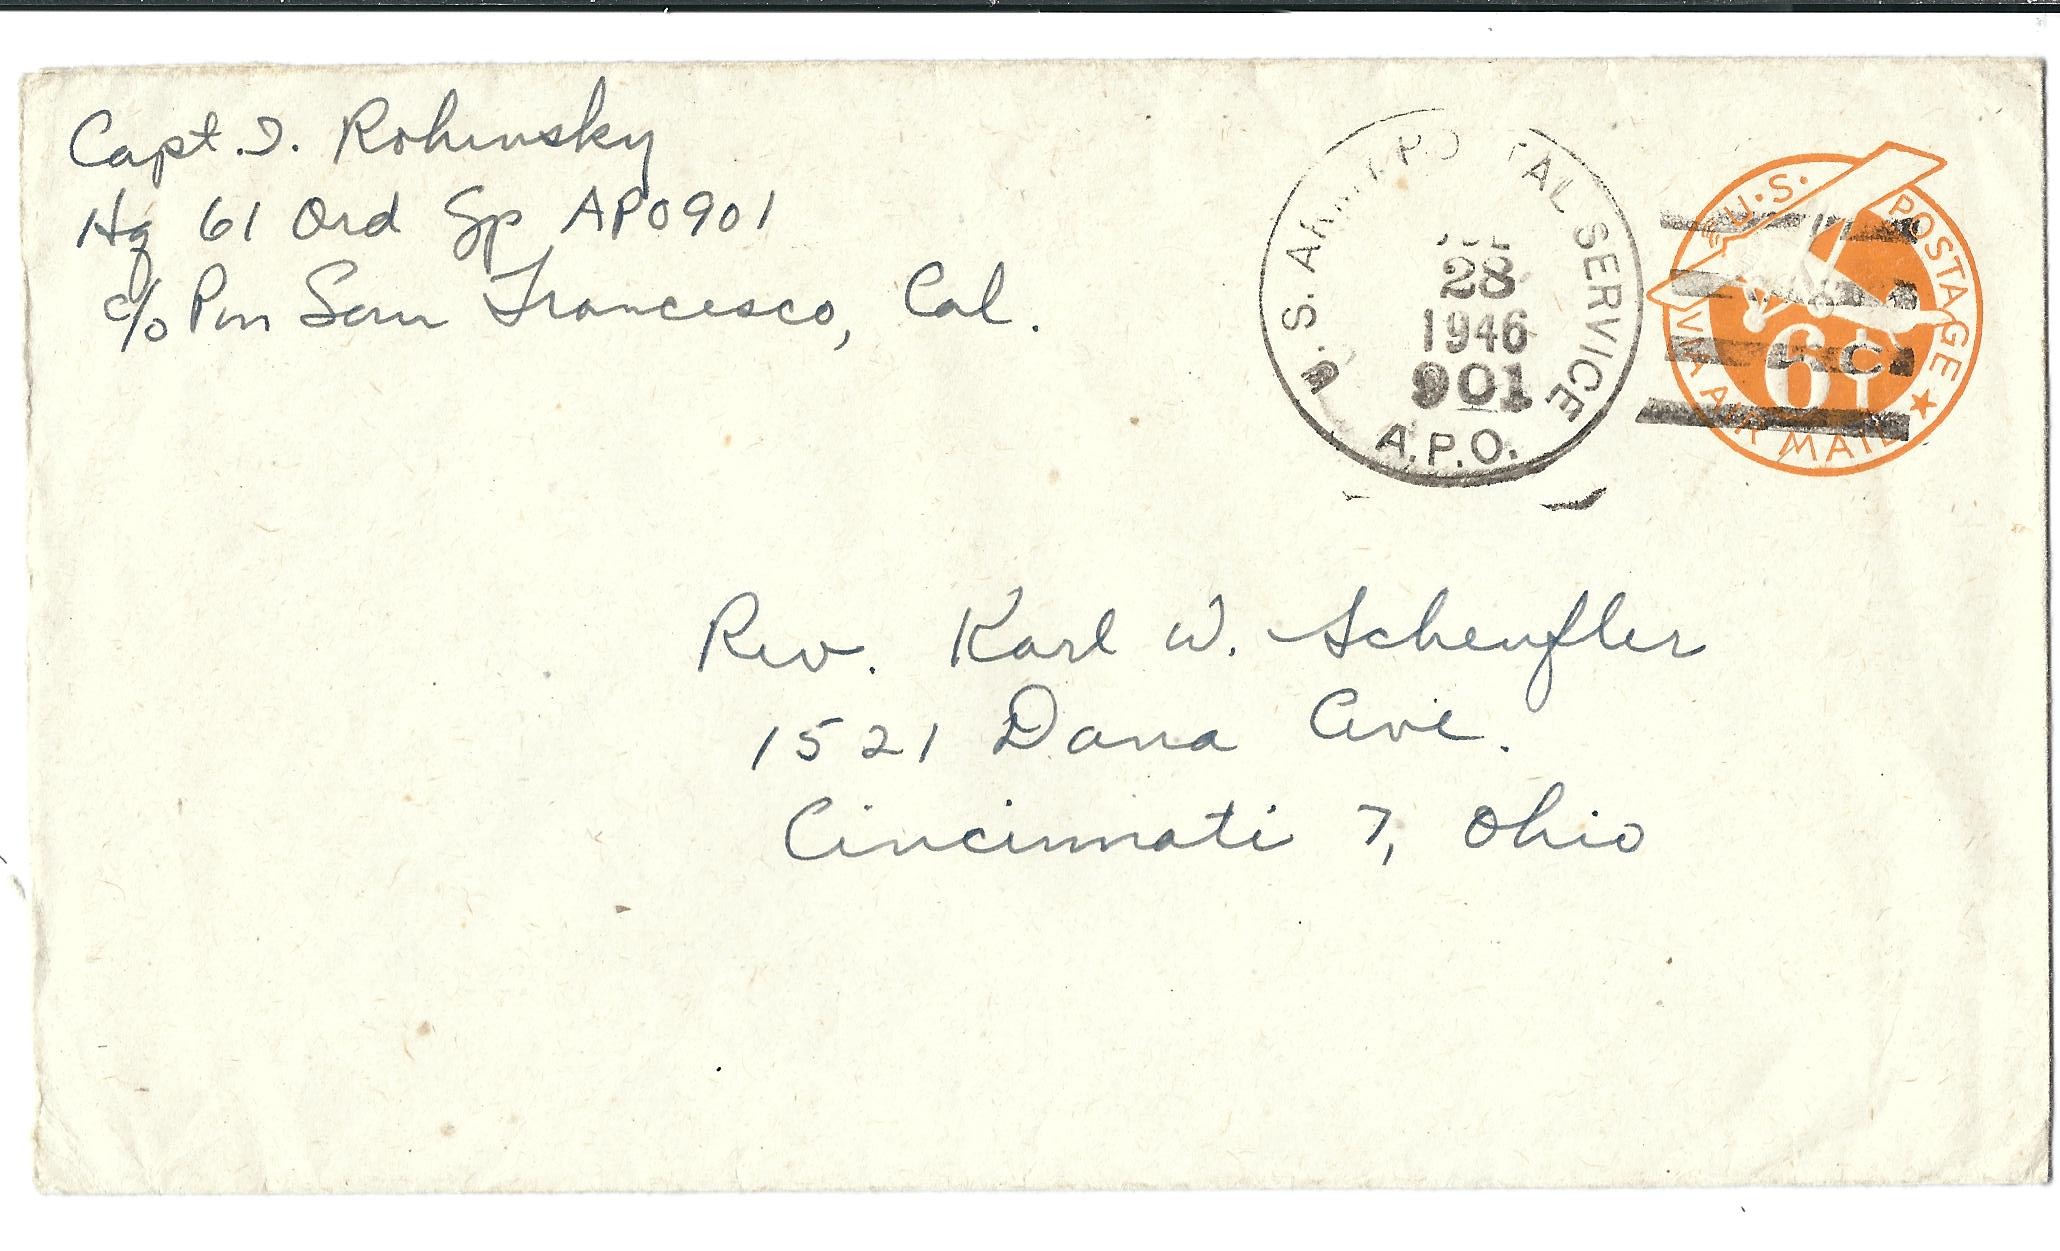 Capt. I. Rohinsky
Hq 61 Ord Gp APO901
c/o Pm San Francesco, Cal.
U.S. ARMY POSTAL SERVICE
JUL
28
1946
901
A.P.O.
U.S. POSTAGE
6¢
VIA AIR MAIL
Rev. Karl W. Scheufler
1521 Dana Ave.
Cincinnati 7, Ohio